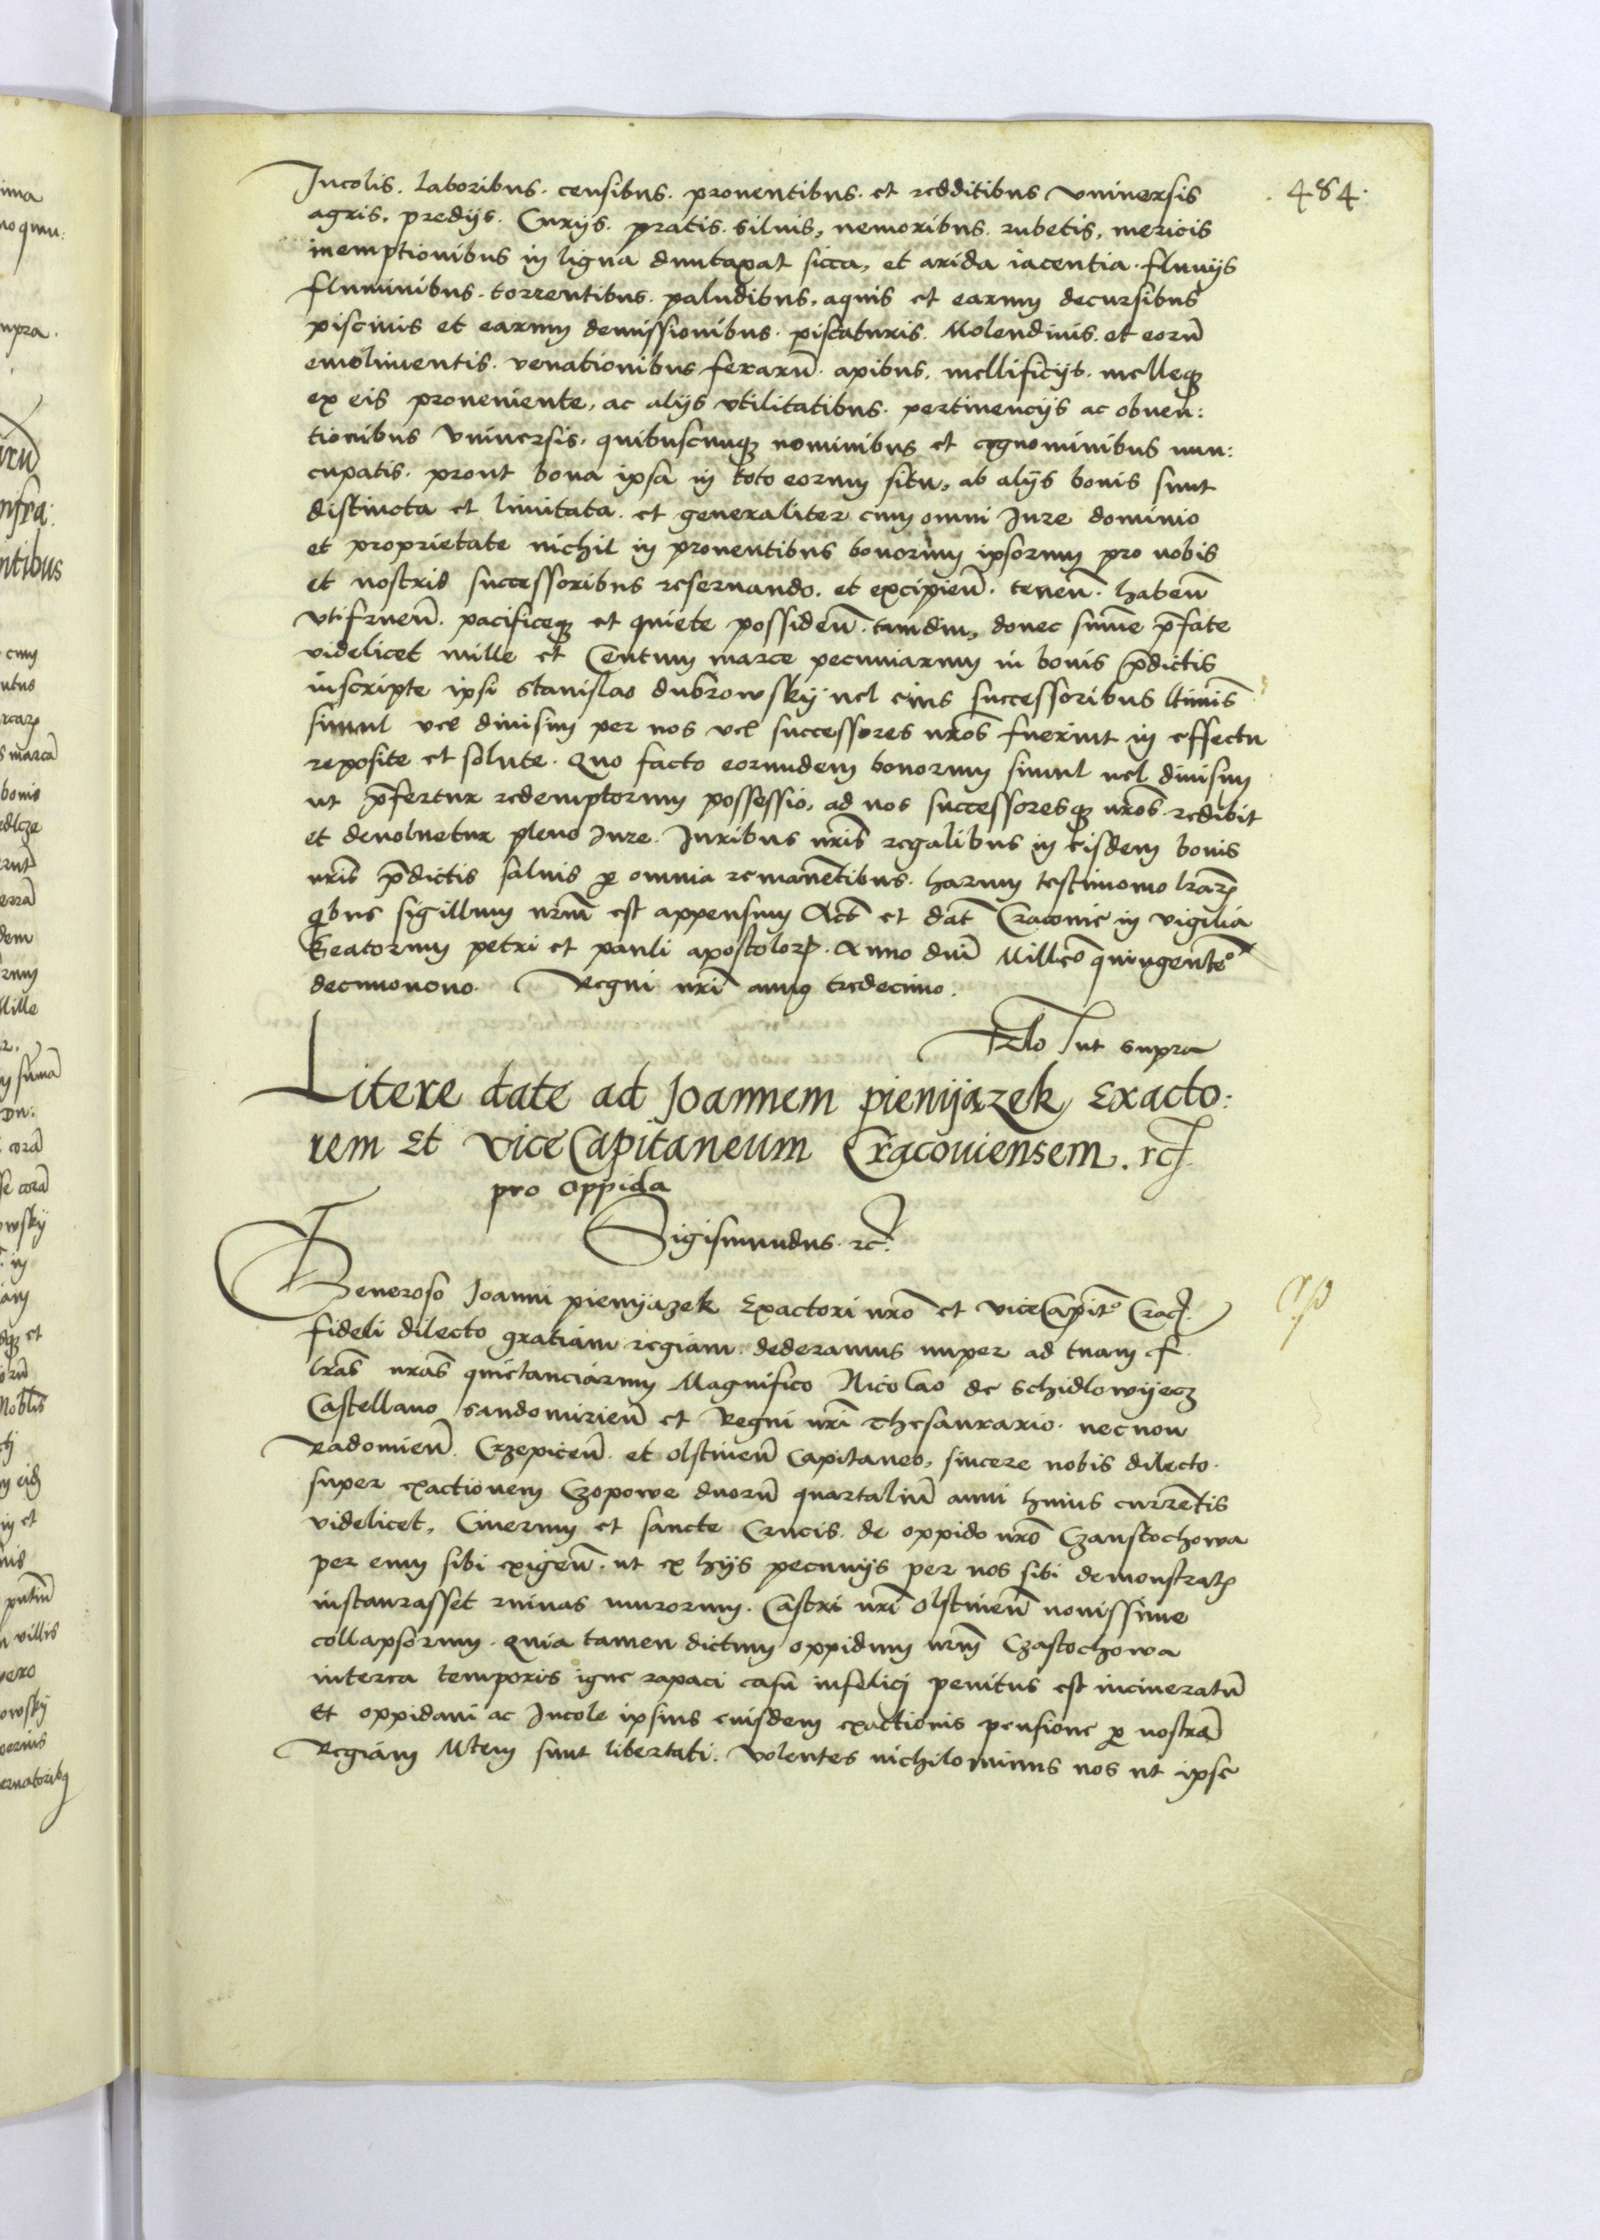 484.
Incolis. laboribus. censibus. proventibus. et redditibus Universis
agris, predijs. Curijs. pratis. silvis, nemoribus. rubetis, mericis
inemptionibus in ligna duntaxat sicca, et arida iacentia. fluvijs
fluminibus. torrentibus. paludibus, aquis et earum decursibus
piscinis et earum demissionibus. piscaturis. Molendinis. et eorū
emolimentis. venationibus ferarū. apibus. mellificijs. melleqꝫ
ex eis proveniente, ac alijs utilitatibus. pertinencijs ac obven:
tionibus Universis. quibuscunqꝫ nominibus et cognominibus nun:
cupatis. prout bona ipsa in toto eorum situ, ab alijs bonis sunt
distincta et limitata. et generaliter cum omni Iure dominio
et proprietate nichil in proventibus bonorum ipsorum pro nobis
et nostris successoribus reservando. et excipieñ. teneñ. habeñ
utifrueñ. pacificeqꝫ et quiete possideñ. tamdiu, donec summe p̄fate
videlicet mille et Centum marce pecuniarum in bonis p̄dictis
inscripte ipsi Stanislao dubrowskij vel eius successoribus ltimis
simul vel divisim per nos vel successores nr̄os fuerint in effectu
reposite et solute. Quo facto eorundem bonorum simul vel divisim
ut p̄fertur redemptorum possessio, ad nos successoresqꝫ nr̄os redibit
et devolvetur pleno Iure. Iuribus nr̄is regalibus in eisdem bonis
nr̄is p̄dictis salvis ꝑ omnia remanētibus. harum testimonio lr̄arꝝ
qbus sigillum nr̄um est appensum Act̄ et dat̄ Cracovie in vigilia
Beatorum petri et pauli apostolorꝝ. Anno dn̄i Millēo quingentēo
decimonono. Regni nr̄i anno tredecimo.
Rlo ut supra
Litere date ad Joannem pienijazek Exacto:
rem Et viceCapitaneum Cracoviensem. rc̄.
pro oppida
Sigismundus. rc̄.
Generoso Joanni pienijazek Exactori nr̄o et viceCapit̄o Crac̄.
fideli dilecto gratiam regiam. dederamus nuper ad tuam f.
lr̄as nr̄as quietanciarum Magnifico Nicolao de Schidlowijecz
Castellano Sandomirieñ et Regni nr̄i Thesaurario. necnon
Radomieñ. Crzepiceñ. et Olstineñ Capitaneo, sincere nobis dilecto.
super exactionem Czopowe duorū quartaliū anni huius currētis
videlicet, Cinerum et sancte Crucis. de oppido nr̄o Czanstochowa
per eum sibi exigeñ. ut ex hijs pecunijs per nos sibi demonstratꝭ
instaurasset ruinas murorum. Castri nr̄i Olstineñ novissime
collapsorum. Quia tamen dictum oppidum nr̄um Czastochowa
interea temporis igne rapaci casu infelici penitus est incineratū
Et oppidani ac Incole ipsius eiusdem exactionis pensione ꝑ nostrā
Regiam Mtem sunt libertati. Volentes nichilominus nos ut ipse